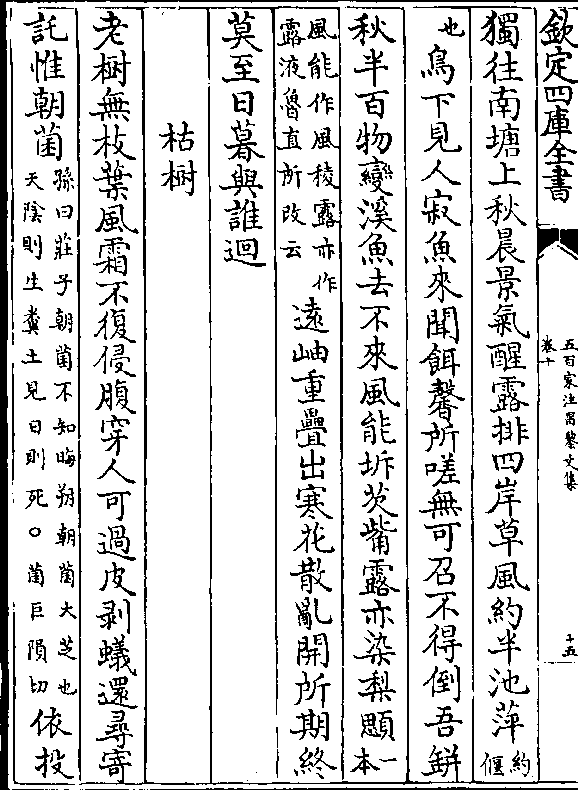 欽定四庫全書
五百家注昌黎文集
卷十
十五
獨往南塘上秋晨景氣醒露排四岸草風約半池萍約偃
也鳥下見人寂魚來聞餌馨所嗟無可召不得倒吾缾
秋半百物變溪魚去不來風能坼芡觜露亦染梨顋一本
風能作風稜露亦作
露液魯直所改云
遠岫重疊出寒花散亂開所期終
莫至日暮與誰迴
枯樹
老樹無枝葉風霜不復侵腹穿人可過皮剥蟻還尋寄
託惟朝菌孫曰莊子朝菌不知晦朔朝菌大芝也
天陰則生糞土見日則死○菌巨隕切
依投